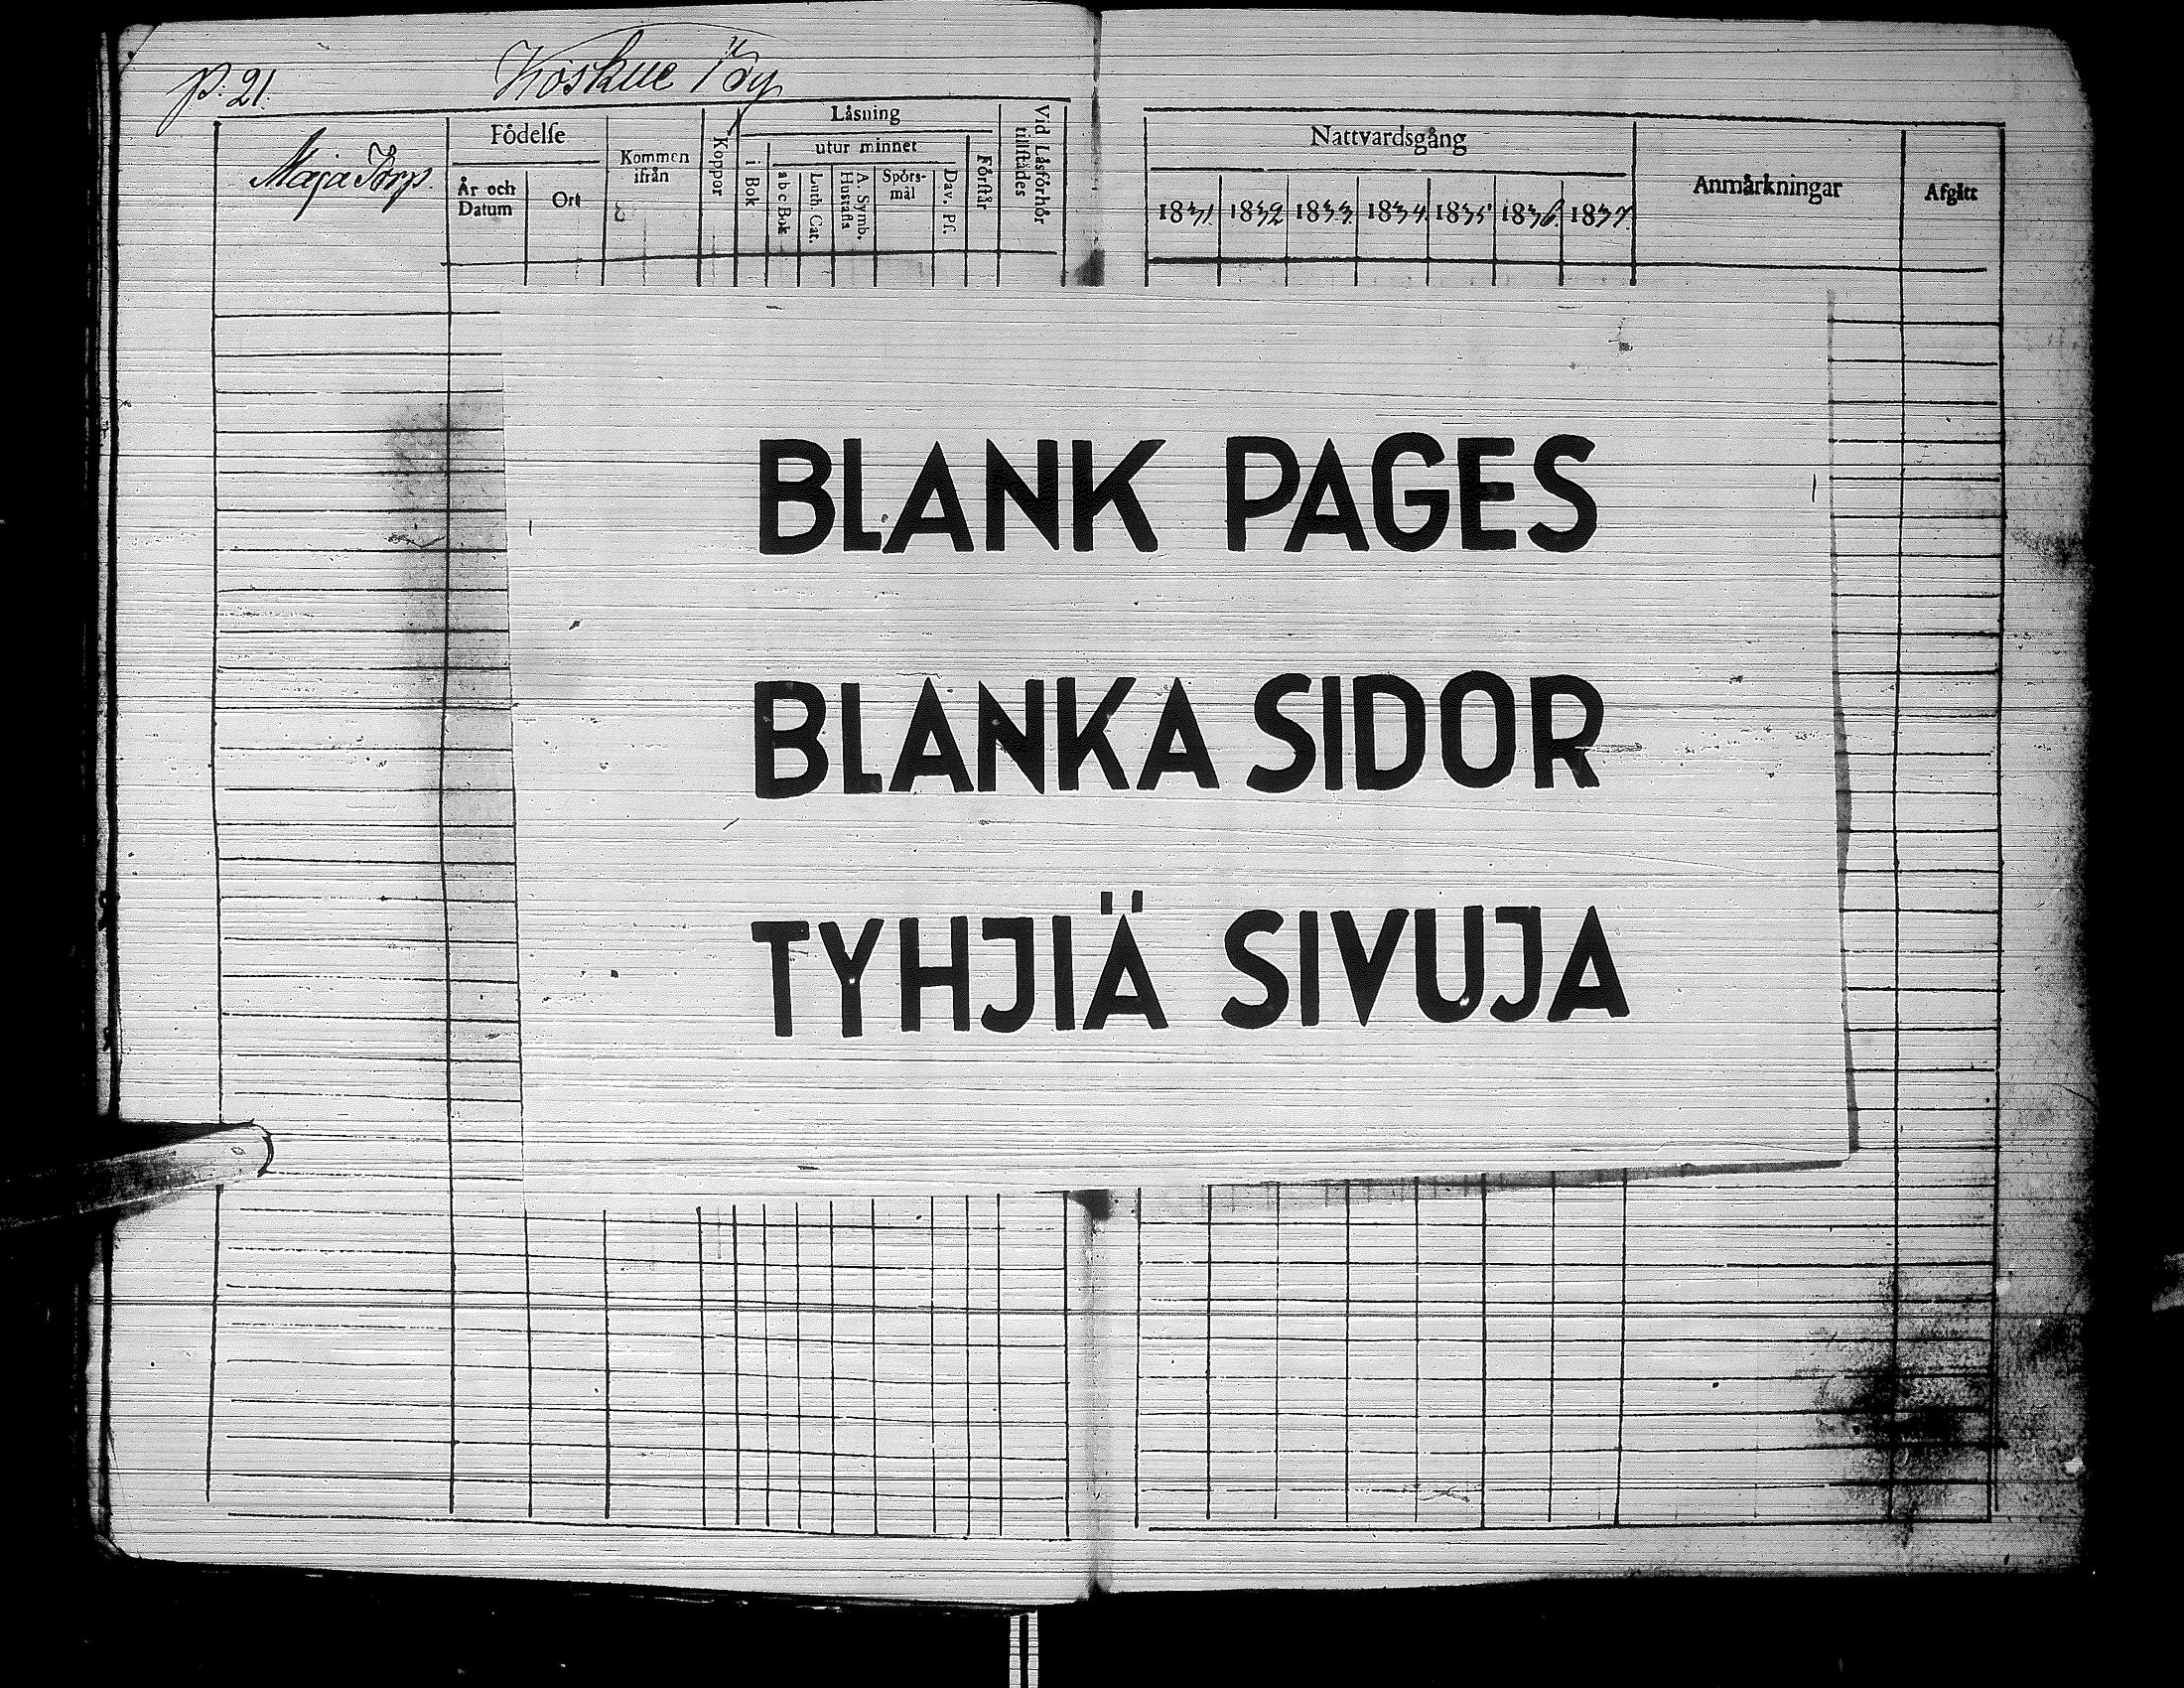 p. 21.
Koskue By
Maja Torp.
Födelse
År och Datum
Ort
Kommen ifrån
Koppor
Läsning
i Bok
utur minnet
a b c Bok
Luth. Cat.
A. Symb. Hustafla
Spörs-mål
Dav. Ps.
Förstår
Vid Läsförhör tillstädes
Nattvardsgång
1831. 1832 1833. 1834. 1835 1836. 1837.
Anmärkningar
Afgått
BLANK PAGES
BLANKA SIDOR
TYHJIÄ SIVUJA